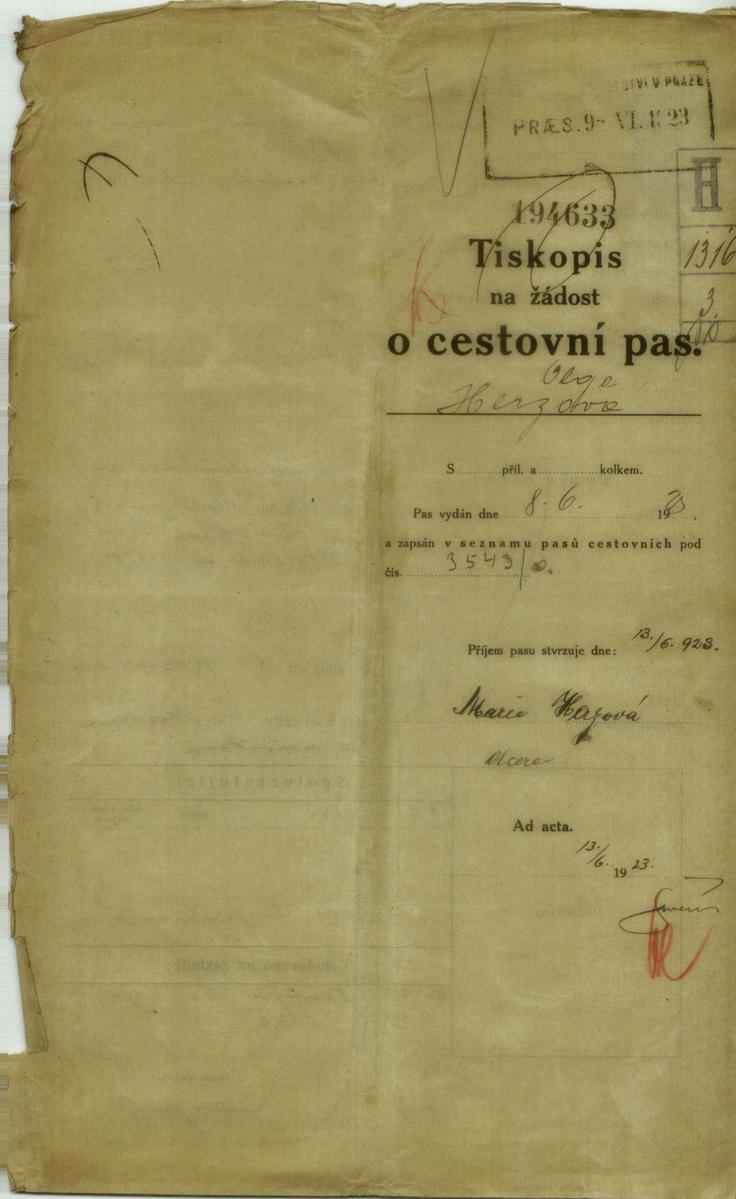 V PRAZE
PRÆS. 9- VI. 1923
H
194633
1316
3
Tiskopis
na žádost
o cestovní pas.
Olga
Herzová
S ............ příl. a ............ kolkem.
Pas vydán dne 8. 6. 1923.
a zapsán v seznamu pasů cestovních pod
čís. 3543/
Příjem pasu stvrzuje dne: 13./6. 923.
Marie Herzová
dcera
Ad acta.
13./6. 1923.
Spolucestující: